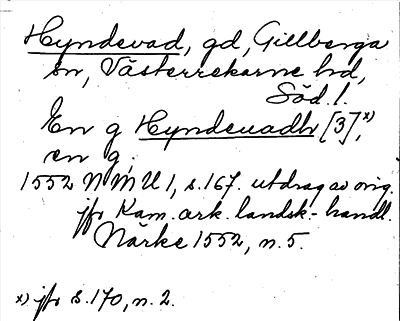 Hyndevad, gd, Gillberga
sn, Västerrekarne hd,
Söd. l.
En g Hyndeuadh [3],x)
en g.
1552 NMU 1, s. 167. utdrag av orig.
jfr Kam. ark. landsk.-handl.
Närke 1552, n. 5.
x) jfr s. 170, n. 2.